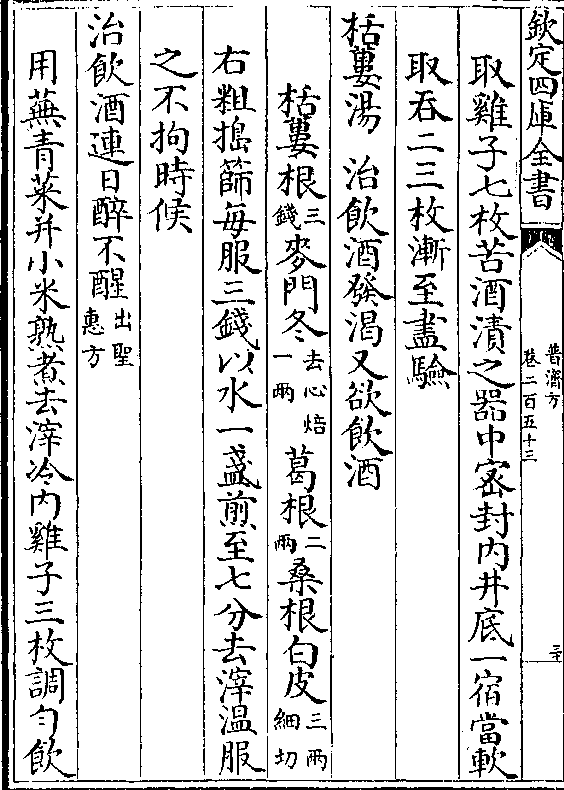 欽定四庫全書
普濟方
卷二百五十三
取雞子七枚苦酒漬之器中密封内井底一宿當軟
取吞二三枚漸至盡驗
栝蔞湯 治飲酒發渴又欲飲酒
栝蔞根三錢麥門冬去心焙一兩葛根二兩桑根白皮三兩細切
右粗搗篩每服三錢以水一盞煎至七分去滓温服
之不拘時候
治飲酒連日醉不醒出聖惠方
用蕪青菜并小米熟煮去滓冷内雞子三枚調勻飲